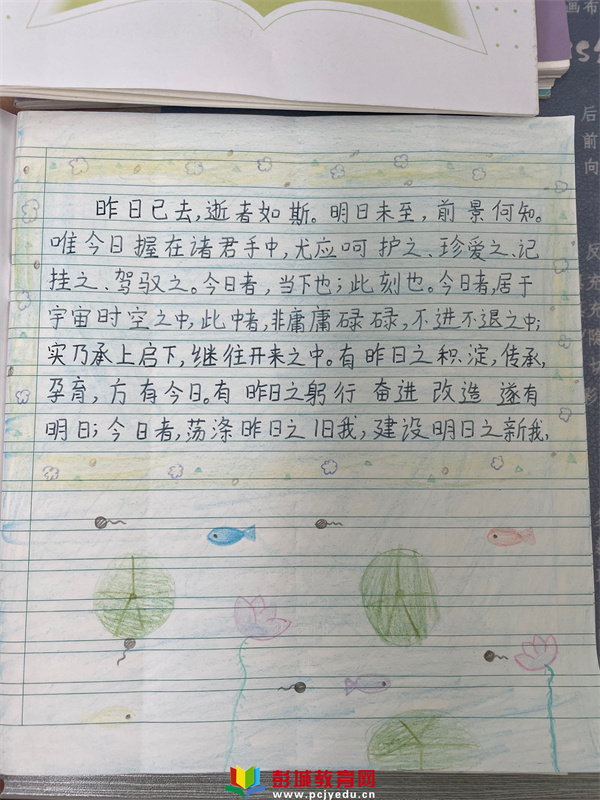 昨日已去,逝者如斯。明日未至,前景何知。
唯今日握在诸君手中,尤应呵护之、珍爱之、记
挂之、驾驭之。今日者,当下也;此刻也。今日者,居于
宇宙时空之中,此中者,非庸庸碌碌,不进不退之中;
实乃承上启下,继往开来之中。有昨日之积淀,传承,
孕育,方有今日。有昨日之躬行 奋进 改造 遂有
明日;今日者,荡涤昨日之旧我,建设明日之新我,
画布
后
前
向
彭城教育网
www.pcjyedu.cn